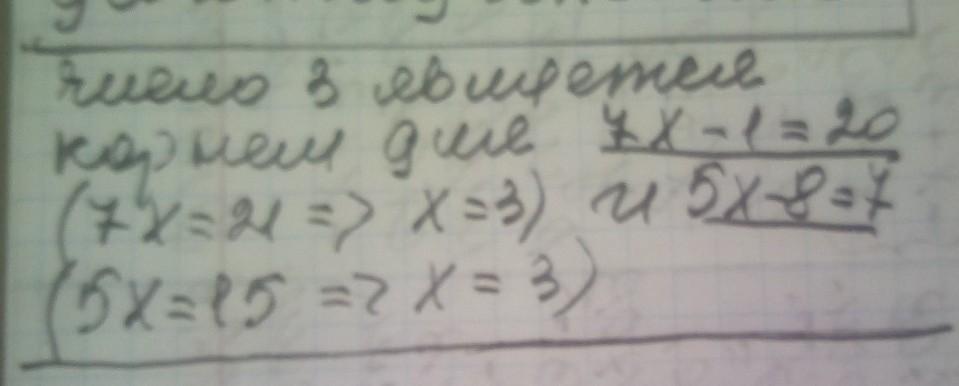 число 3 является
корнем для 7x-1=20
(7x=21 => x=3) и 5x-8=7
(5x=15 => x=3)